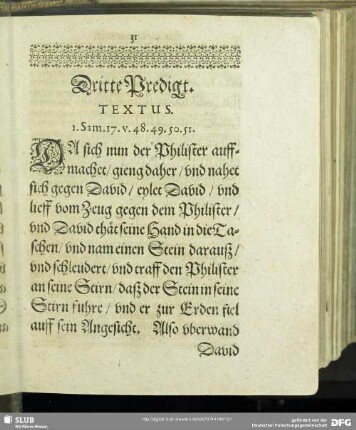 31
Dritte Predigt.
TEXTUS.
1. Sam. 17. v. 48. 49. 50. 51.
DA sich nun der Philister auff-
machet / gieng daher / vnd nahet
sich gegen David / eylet David / vnd
lieff vom Zeug gegen dem Philister /
vnd David thät seine Hand in die Ta-
schen / vnd nam einen Stein darauß /
vnd schleudert / vnd traff den Philister
an seine Stirn / daß der Stein in seine
Stirn fuhre / vnd er zur Erden fiel
auff sein Angesicht. Also vberwand
David
SLUB
Wir führen Wissen.
gefördert von der
Deutschen Forschungsgemeinschaft
DFG